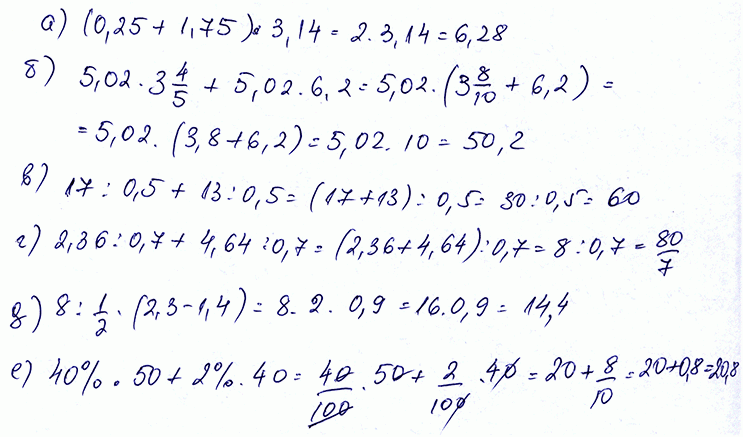 а) (0,25 + 1,75) · 3,14 = 2 · 3,14 = 6,28
б) 5,02 · 3 4/5 + 5,02 · 6,2 = 5,02 · (3 8/10 + 6,2) =
= 5,02 · (3,8 + 6,2) = 5,02 · 10 = 50,2
в) 17 : 0,5 + 13 : 0,5 = (17 + 13) : 0,5 = 30 : 0,5 = 60
г) 2,36 : 0,7 + 4,64 : 0,7 = (2,36 + 4,64) : 0,7 = 8 : 0,7 = 80/7
д) 8 : 1/2 · (2,3 - 1,4) = 8 · 2 · 0,9 = 16 · 0,9 = 14,4
е) 40% · 50 + 2% · 40 = 40/100 · 50 + 2/100 · 40 = 20 + 8/10 = 20 + 0,8 = 20,8